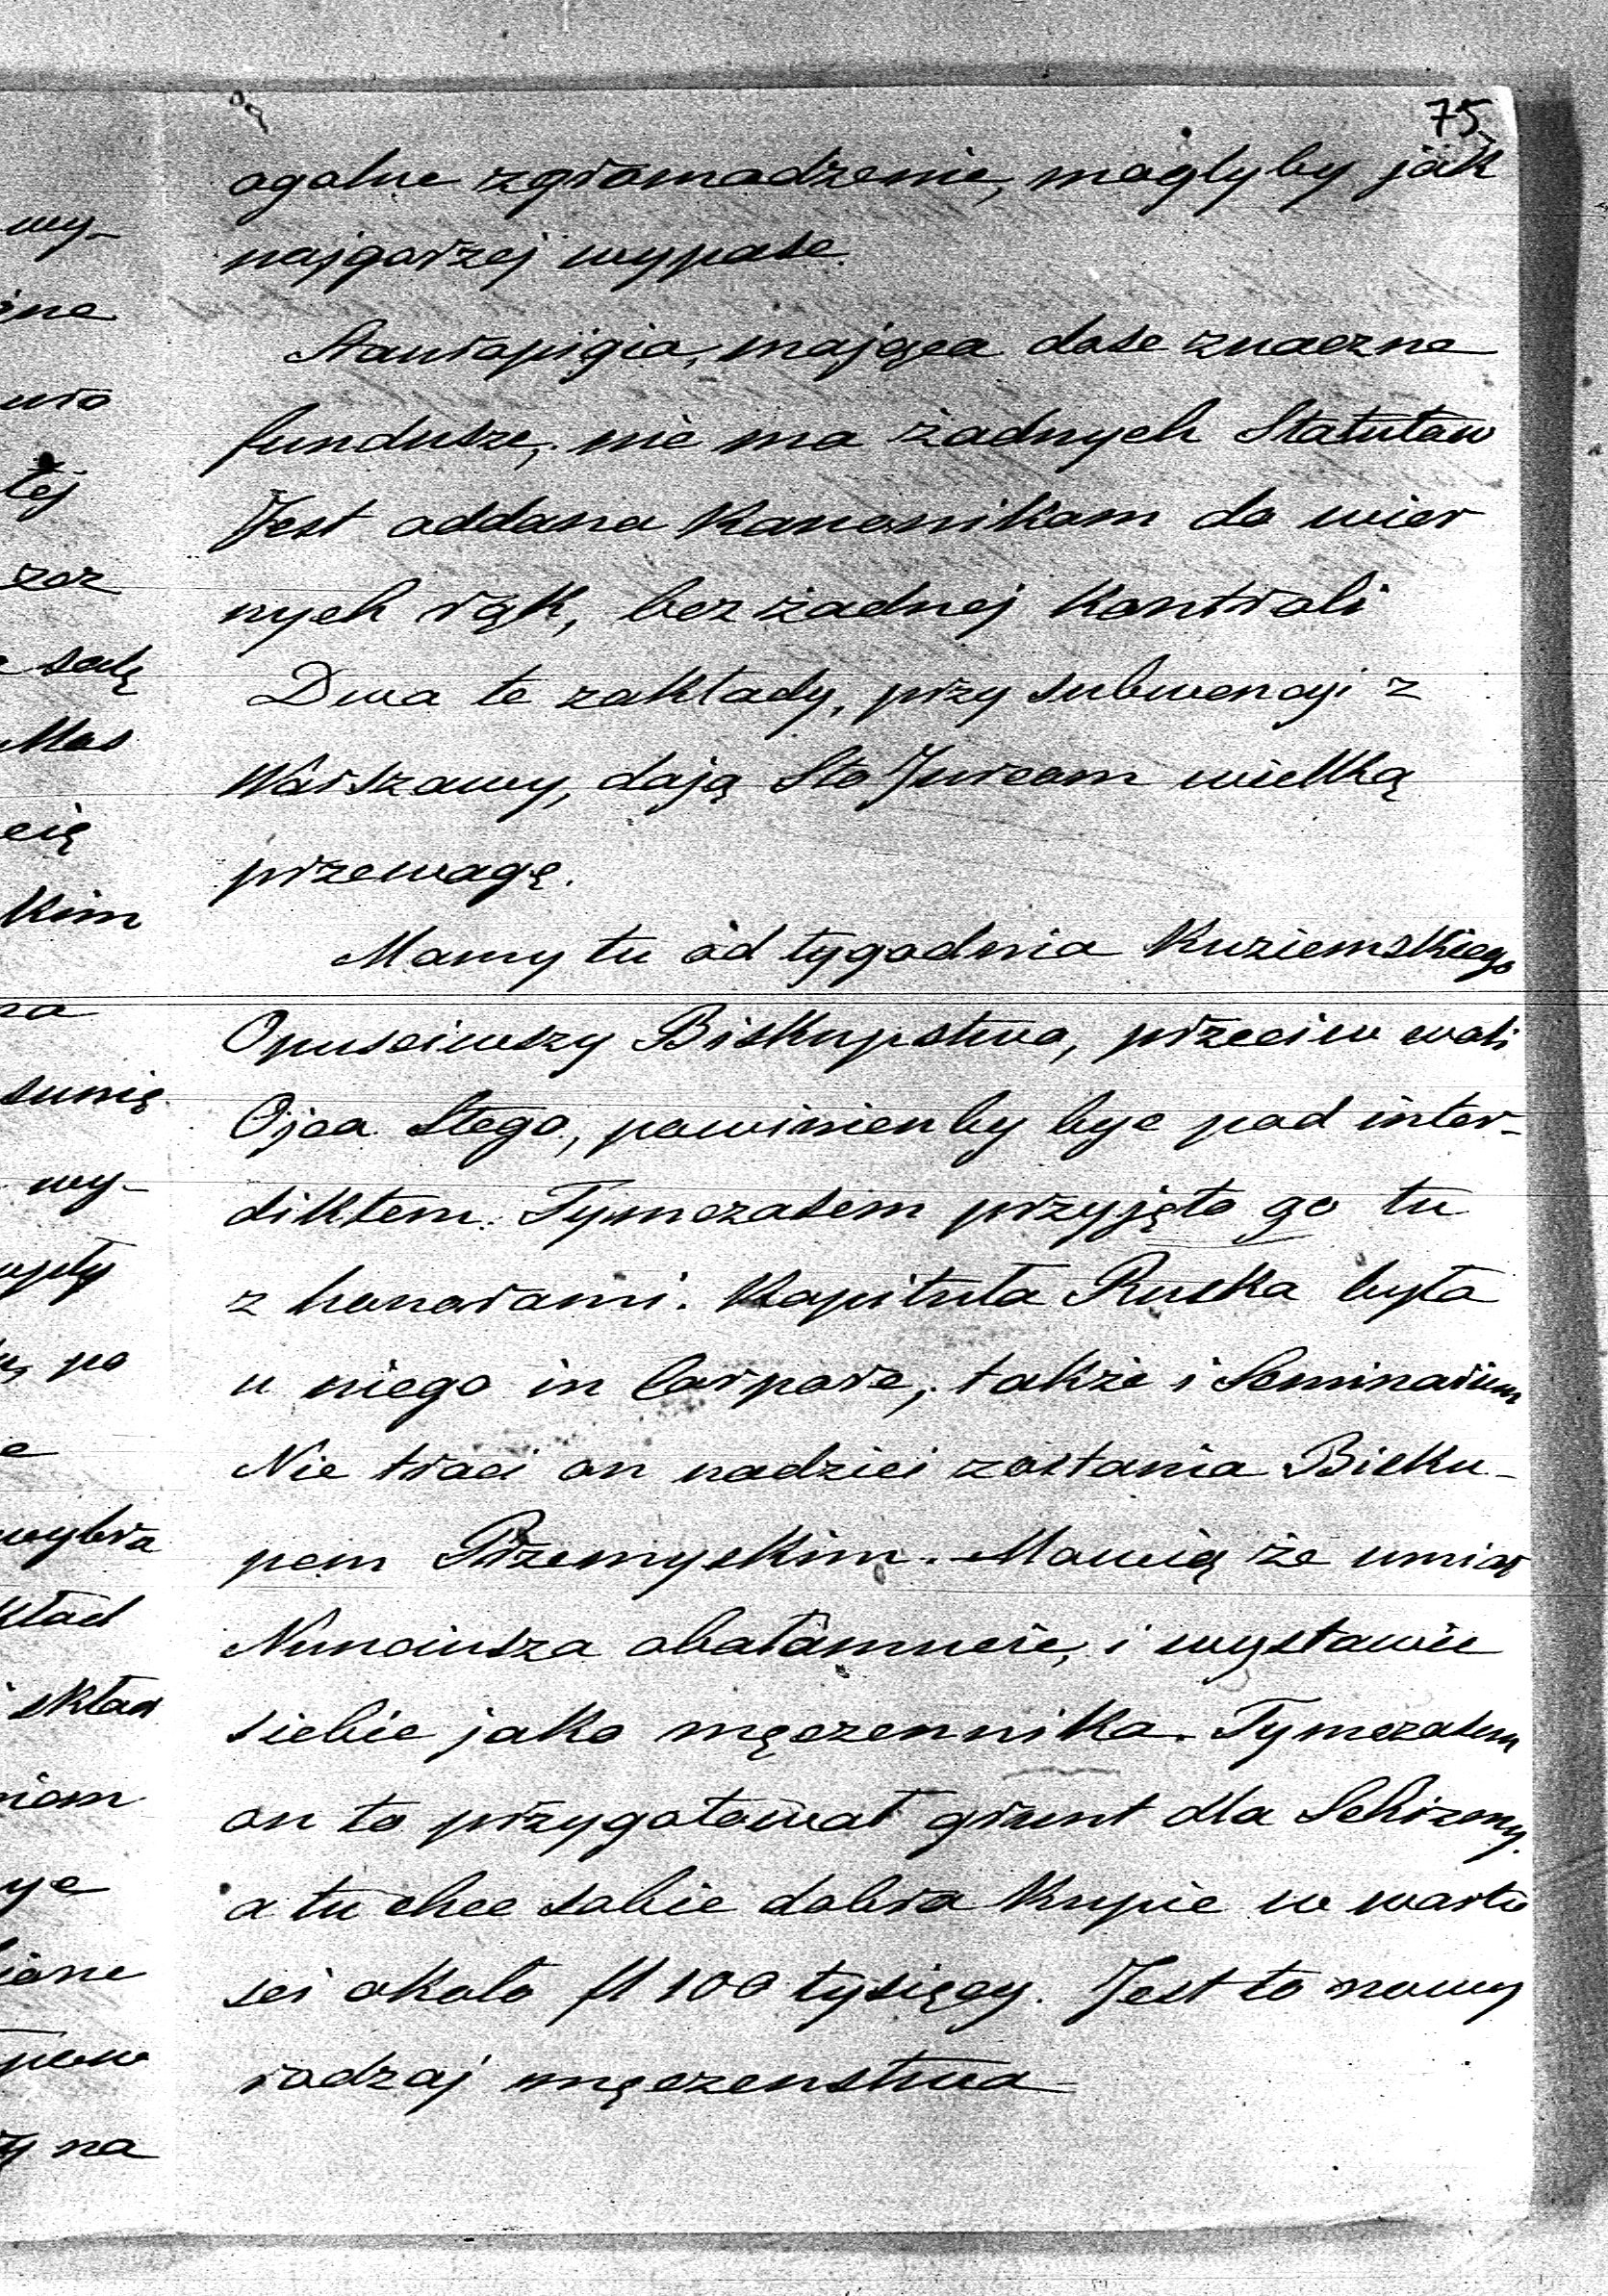 75
ogolne zgromadzenie, mogłyby jak
najgorzej wypasc.
Stauropigia, mająca dosc znaczne
fundusze, nie ma żadnych Statutow
Jest oddana Kanonikom do wier
nych rąk, bez żadnej kontroli
Dwa te zakłady, przy subwencyi z
Warszawy, dają Sto Jurcom wielką
przewagę.
Mamy tu od tygodnia Kuziemskiego
Opusciwszy Biskupstwo, przeciw woli
Ojca Stego, powinienby byc pod inter-
diktem. Tymczasem przyjęto go tu
z honorami. Kapituła Ruska była
u niego in Corpore, także i Seminarium
Nie traci on nadziei zostania Bisku-
pem Przemyskim. Mowią że umiał
Nunciusza obałamucic, i wystawic
siebie jako męczennika. Tymczasem
on to przygotował grunt dla Schizmy.
a tu chce sobie dobra kupic w warto
sci okolo fl 100 tysięcy. Jest to nowy
rodzaj męczenstwa-
wy-
ine
wio
tej
zoz
solę
Mos
cię
kim
za
sunię.
wy-
po
e
wybra
kład
skład
niom
ye
iane
na